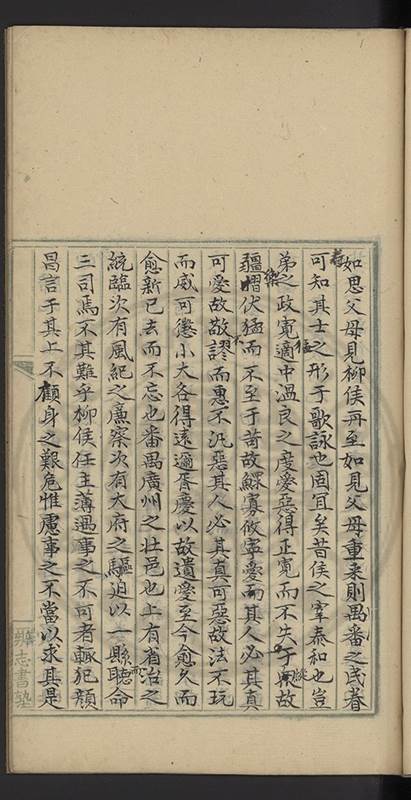 如思父母見柳侯再至如見父母重來則禺番之民眷
可知其士之形于歌詠也固宜矣昔侯之宰泰和也豈
弟之政寬適中溫良之度愛惡得正寬而不失于縱故
疆禦慴伏猛而不至于苛故鰥寡攸寧愛而其人必其真
可愛故敬謬而惠不汎惡其人必其真可惡故法不玩
而威可懲小大各得遠邇胥慶以故遺愛至今愈久而
愈新已去而不忘也番禺廣州之壯邑也上有省治之
統臨次有風紀之廉察次有大府之驅迫以一縣而聽命
三司焉不其難乎柳侯任主薄遇事之不可者輒犯顏
昌言于其上不顧身之艱危惟慮事之不當以求其是
辨志書塾